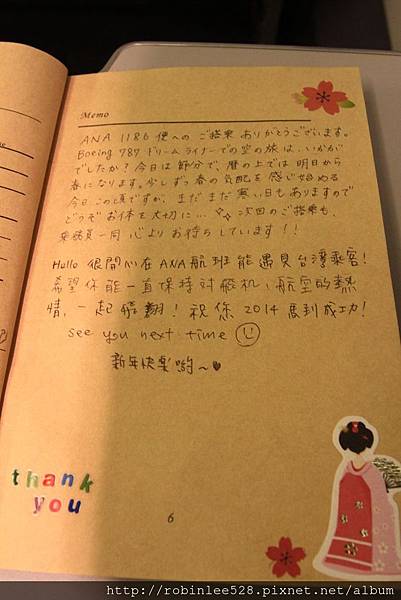 Memo
ANA 1186 便への ご搭乗 ありがとうございます。
Boeing 787 ドリームライナーでの空の旅は、いかが
でしたか？今日は 節分で、暦の上では 明日から
春になります。少しずつ 春の気配を 感じ始める
今日この頃ですが、まだまだ 寒い日もありますので
どうぞ お体を大切に… 次回のご搭乗も、
乗務員一同 心よりお待ちしています！！
Hello 很開心在ANA航班能遇見台灣乘客!
希望你能一直保持對飛机、航空的熱
情,一起翱翔! 祝您2014馬到成功!
see you next time
新年快樂喲～♥
thank
you
6
http://robinlee528.pixnet.net/album